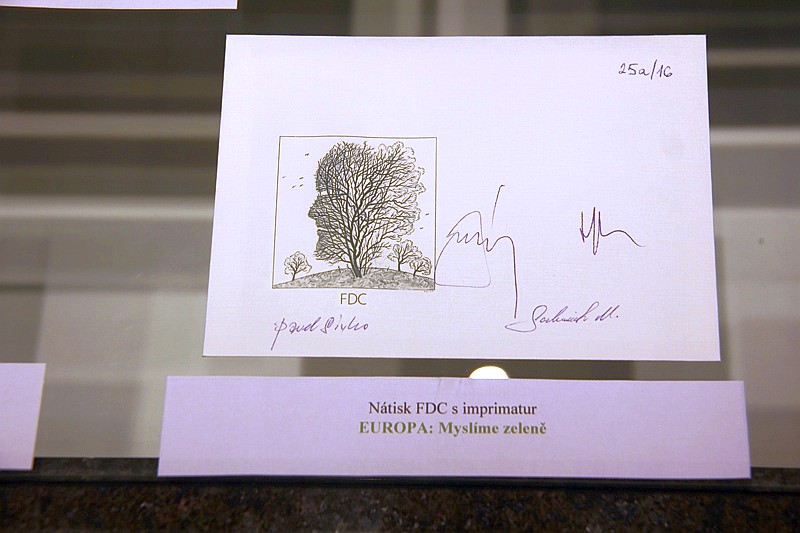 25a/16
FDC
Pavel Sivko
Nátisk FDC s imprimatur
EUROPA: Myslíme zeleně